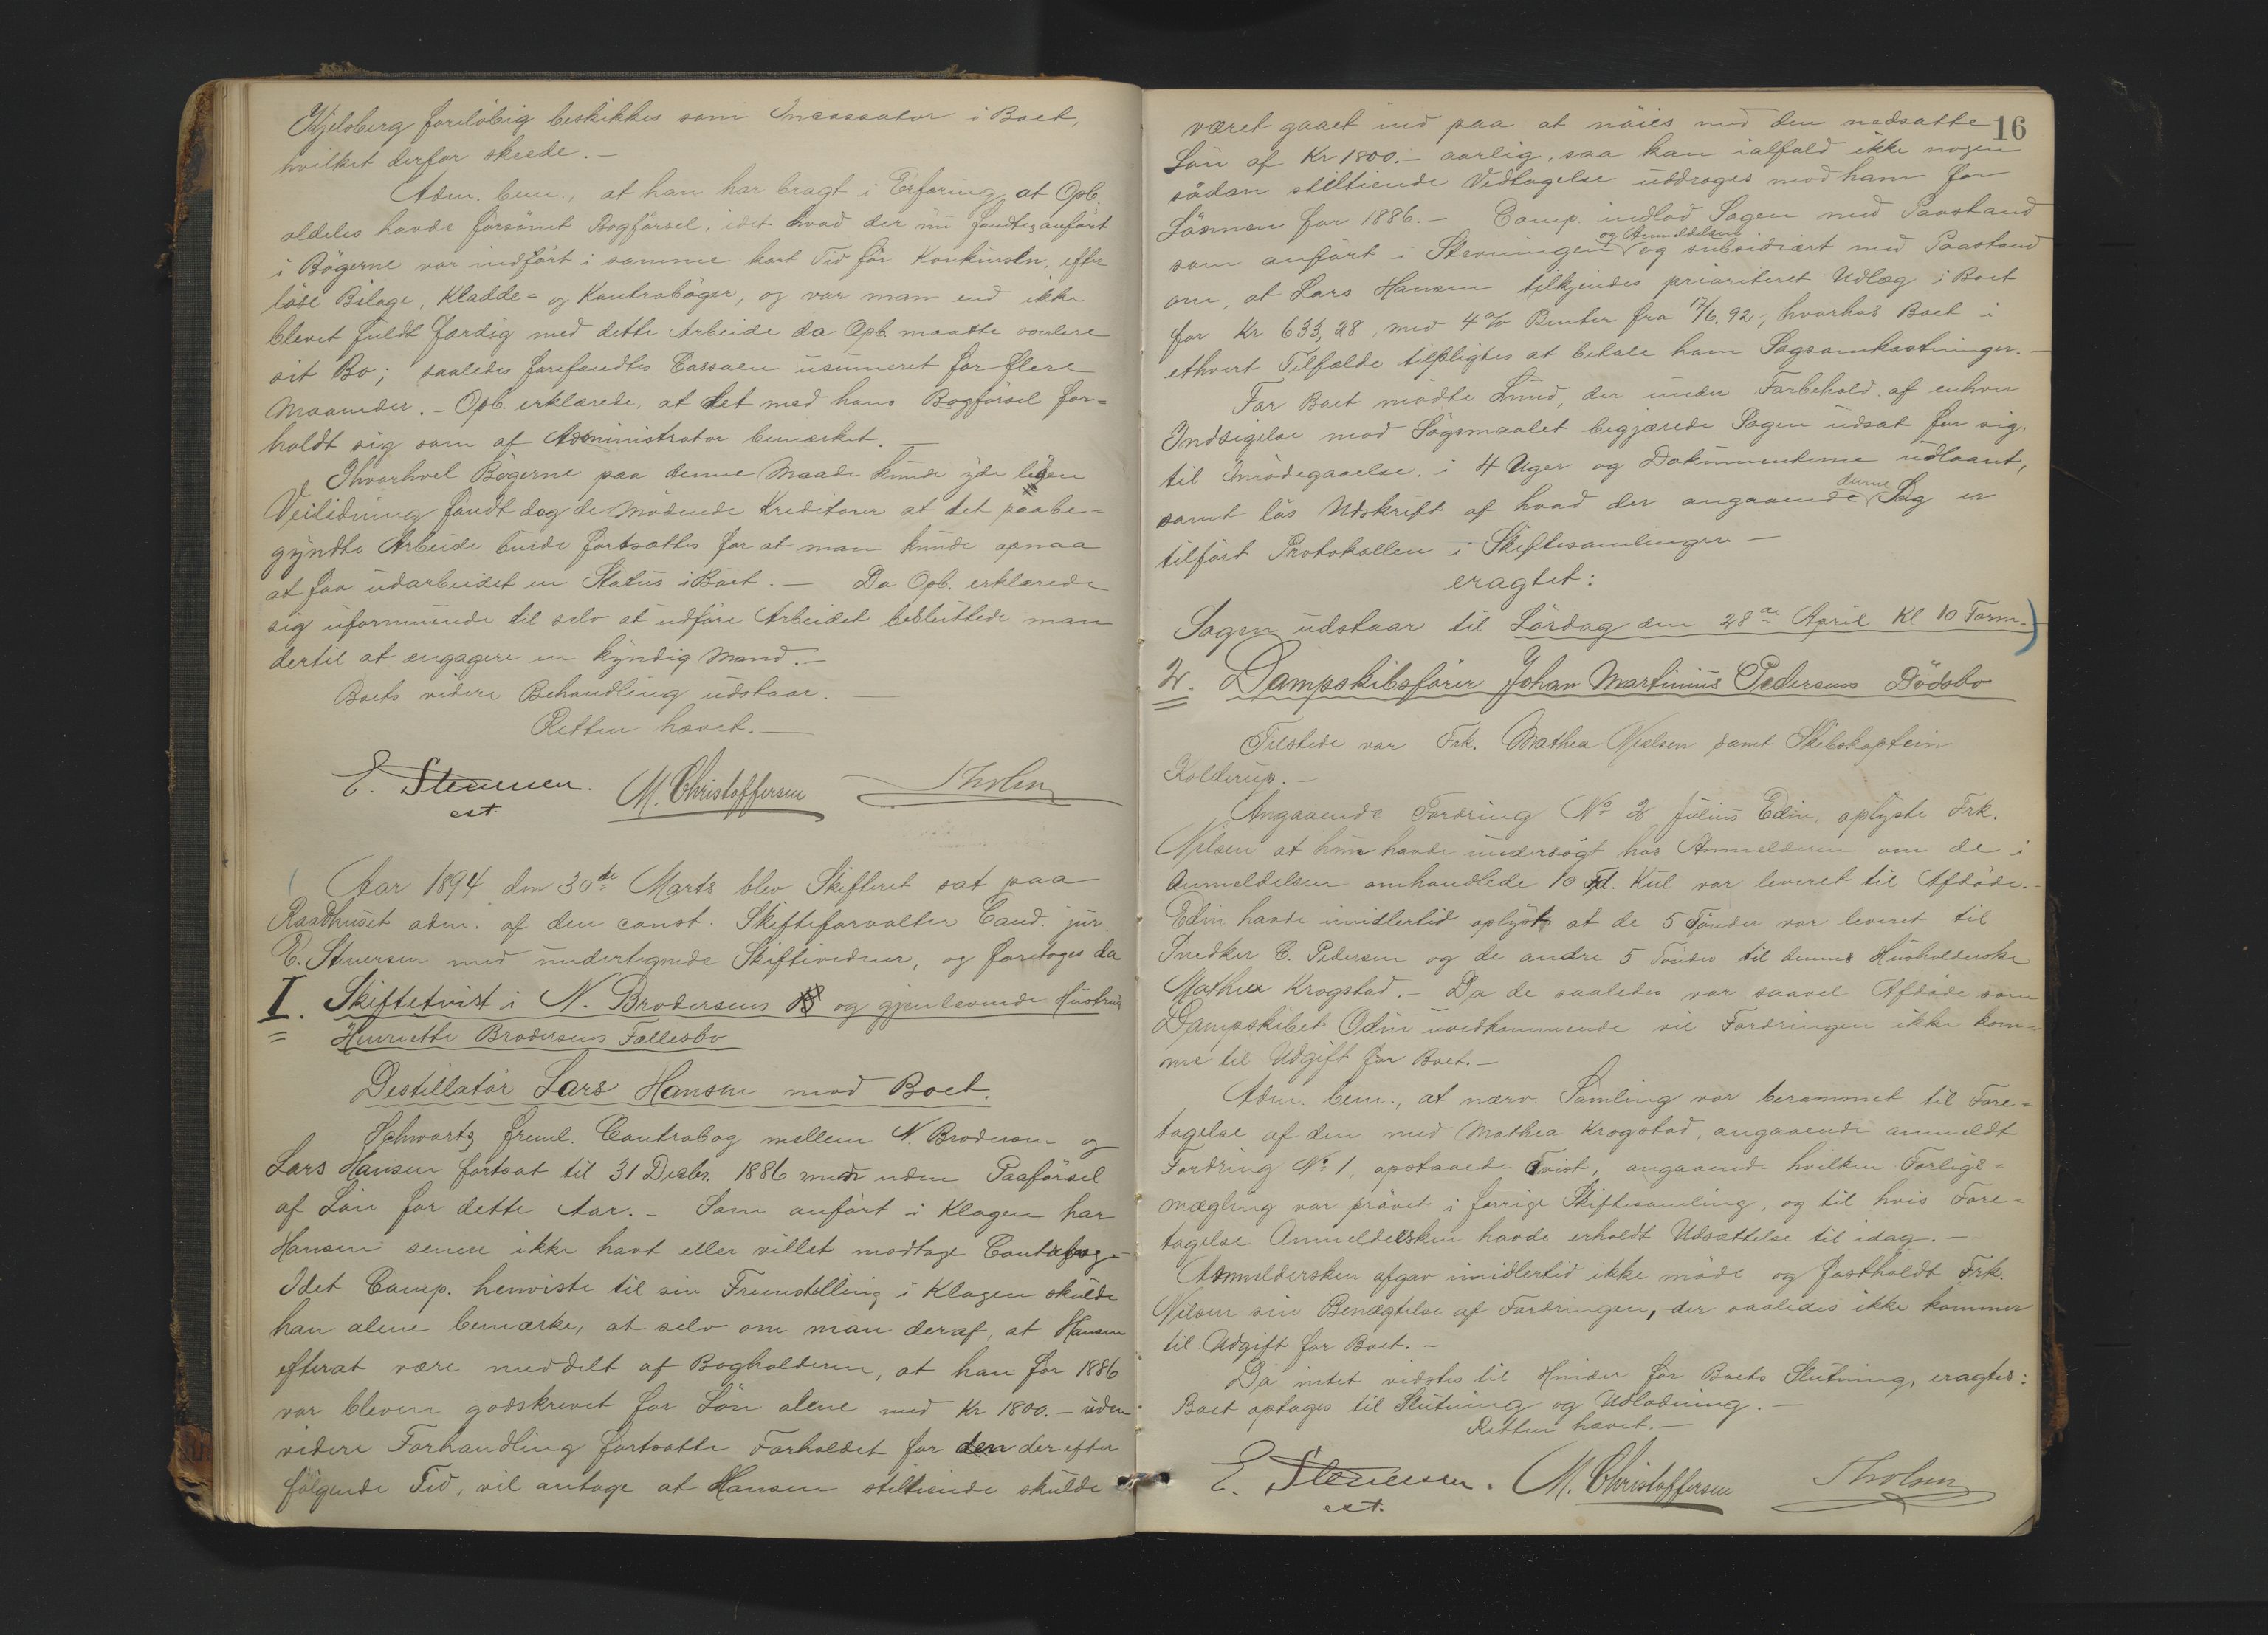 Kjelsberg foreløbig beskikkes som Incassator i Boet,
hvilket derfor skeede.-
Adm. bem., at han har bragt i Erfaring at Opb.
aldeles havde forsømt Bogførsel, idet hvad der nu fandtes anført
i Bøgerne var indført i samme kort Tid før Konkursen, efter
løse Bilage, Kladde- og Kontrabøger, og var man end ikke
blevet fuldt færdig med dette Arbeide da Opb. maatte overlere
sit Bo; saaledes forefandtes Cassaen usummeret for flere
Maaneder.- Opb. erklærede, at det med hans Bogførsel for-
holdt sig som af Administrator bemærket.-
Ihvorhvel Bøgerne paa denne Maade kunde yde liden
Veiledning fandt dog de mødende Kreditorer at det paabe-
gyndte Arbeide burde fortsættes for at man kunde opnaa
at faa udarbeidet en Status i Boet.- Da Opb. erklærede
sig uformuende til selv at udføre Arbeidet besluttede man
dertil at engagere en kyndig Mand.-
Boets videre Behandling udstaar.-
Retten hævet.-
E. Stenersen. M. Christoffersen Tholsen
cst.
Aar 1894 den 30de Marts blev Skifteret sat paa
Raadhuset adm. af den const. Skifteforvalter Cand. jur.
E. Stenersen med undertegnede Skiftevidner, og foretoges da
I. Skiftetvist i N. Brodersens og gjenlevende Hustru
Henriette Brodersens Fællesbo
Destillatør Lars Hansen mod Boet.
Schwartz freml. Contrabog mellem N. Brodersen og
Lars Hansen fortsat til 31 Decbr. 1886 men uden Paaførsel
af Løn for dette Aar.- Som anført i Klagen har
Hansen senere ikke havt eller villet modtage Contrabog.-
Idet Comp. henviste til sin Fremstilling i Klagen skulde
han alene bemærke, at selv om man deraf, at Hansen
efterat være meddelt af Bogholderen, at han for 1886
var bleven godskrevet for Løn alene med Kr 1800.- uden
videre Forhandling fortsatte Forholdet for den derefter
følgende Tid, vil antage at Hansen stiltiende skulde
16
været gaaet ind paa at nøies med den nedsatte
Løn af Kr 1800.- aarlig, saa kan ialfald ikke nogen
sådan stiltiende Vedtagelse uddrages mod ham for
Lønnen for 1886.- Comp. indlod Sagen med Paastand
som anført i Stevningen og Anmeldelsen og subsidiært med Paastand
om, at Lars Hansen tilkjendes prioriteret Udlæg i Boet
for Kr 633,28, med 4% Renter fra 17/6.92, hvorhos Boet i
ethvert Tilfælde tilpligtes at betale ham Sagsomkostninger.-
For Boet mødte Lund, der under Forbehold af enhver
Indsigelse mod Søgsmaalet begjærede Sagen udsat for sig,
til Imødegaaelse, i 4 Uger og Dokumenterne udlaant,
samt løs Udskrift af hvad der angaaende denne Sag er
tilført Protokollen i Skiftesamlingen-
eragtet:
Sagen udstaar til Lørdag den 28de April Kl 10 Form.-
2. Dampskibsfører Johan Martinius Pedersens Dødsbo
Tilstede var Frk. Mathea Nielsen samt Skibskaptein
Kolderup.-
Angaaende Fordring No 2 Julius Edin, oplyste Frk.
Nielsen at hun havde undersøgt hos Anmelderen om de i
Anmeldelsen omhandlede 10 Td. Kul var leveret til Afdøde.-
Edin havde imidlertid oplyst at de 5 Tønder var leveret til
Snedker C. Pedersen og de andre 5 Tønder til dennes Husholderske
Mathea Krogstad.- Da de saaledes var saavel Afdøde som
Dampskibet Odin uvedkommende vil Fordringen ikke kom-
me til Udgift for Boet.-
Adm. bem., at nærv. Samling var berammet til Fore-
tagelse af den med Mathea Krogstad, angaaende anmeldt
Fordring No 1, opstaaede Tvist, angaaende hvilken Forligs-
mægling var prøvet i forrige Skiftesamling, og til hvis Fore-
tagelse Anmeldersken havde erholdt Udsættelse til idag.-
Anmeldersken afgav imidlertid ikke møde og fastholdt Frk.
Nielsen sin Benægtelse af Fordringen, der saaledes ikke kommer
til Udgift for Boet.-
Da intet vidstes til Hinder for Boets Slutning, eragtes:
Boet optages til Slutning og Udlodning.-
Retten hævet.-
E. Stenersen. M. Christoffersen Tholsen
cst.